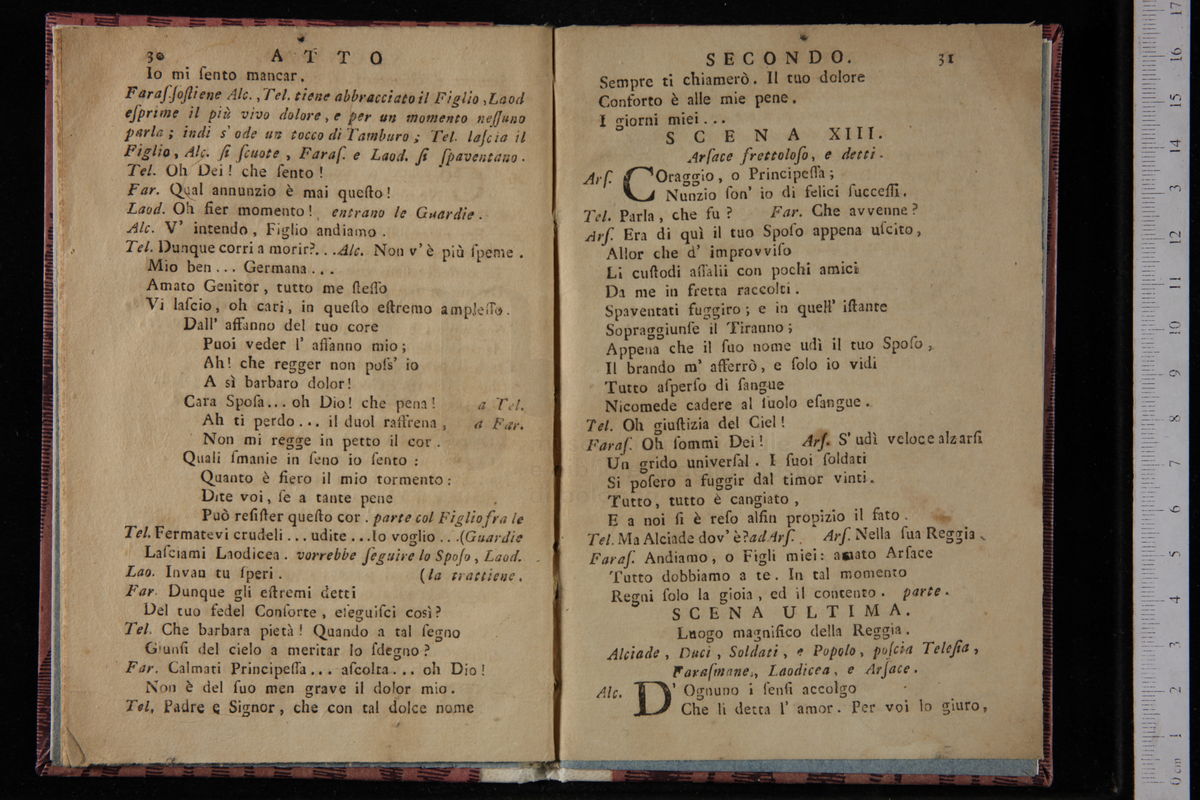 30 ATTO
Io mi ſento mancar.
Faraſ. ſoſtiene Alc., Tel. tiene abbracciato il Figlio, Laod
eſprime il più vivo dolore, e per un momento neſſuno
parla; indi s' ode un tocco di Tamburo; Tel. laſcia il
Figlio, Alc. ſi ſcuote, Faraſ. e Laod. ſi ſpaventano.
Tel. Oh Dei! che ſento!
Far. Qual annunzio è mai queſto!
Laod. Oh fier momento! entrano le Guardie.
Alc. V' intendo, Figlio andiamo.
Tel. Dunque corri a morir?... Alc. Non v' è più ſpeme.
Mio ben... Germana...
Amato Genitor, tutto me ſteſſo
Vi laſcio, oh cari, in queſto eſtremo ampleſſo.
Dall' affanno del tuo core
Puoi veder l' affanno mio;
Ah! che regger non poſs' io
A sì barbaro dolor!
Cara Spoſa... oh Dio! che pena! a Tel.
Ah ti perdo... il duol raffrena, a Far.
Non mi regge in petto il cor.
Quali ſmanie in ſeno io ſento:
Quanto è fiero il mio tormento:
Dite voi, ſe a tante pene
Può reſiſter queſto cor. parte col Figlio fra le
Tel. Fermatevi crudeli... udite... Io voglio... (Guardie
Laſciami Laodicea. vorrebbe ſeguire lo Spoſo, Laod.
Lao. Invan tu ſperi. (la trattiene.
Far. Dunque gli eſtremi detti
Del tuo fedel Conſorte, eſeguiſci così?
Tel. Che barbara pietà! Quando a tal ſegno
Giunſi del cielo a meritar lo ſdegno?
Far. Calmati Principeſſa... aſcolta... oh Dio!
Non è del ſuo men grave il dolor mio.
Tel. Padre e Signor, che con tal dolce nome
SECONDO. 31
Sempre ti chiamerò. Il tuo dolore
Conforto è alle mie pene.
I giorni miei...
SCENA XIII.
Arſace frettoloſo, e detti.
Arſ. COraggio, o Principeſſa;
Nunzio ſon' io di felici ſucceſſi.
Tel. Parla, che fu? Far. Che avvenne?
Arſ. Era di quì il tuo Spoſo appena uſcito,
Allor che d' improvviſo
Li cuſtodi aſſalii con pochi amici
Da me in fretta raccolti.
Spaventati fuggiro; e in quell' iſtante
Sopraggiunſe il Tiranno;
Appena che il ſuo nome udì il tuo Spoſo,
Il brando m' afferrò, e ſolo io vidi
Tutto aſperſo di ſangue
Nicomede cadere al ſuolo eſangue.
Tel. Oh giuſtizia del Ciel!
Faraſ. Oh ſommi Dei! Arſ. S' udì veloce alzarſi
Un grido univerſal. I ſuoi ſoldati
Si poſero a fuggir dal timor vinti.
Tutto, tutto è cangiato,
E a noi ſi è reſo alfin propizio il fato.
Tel. Ma Alciade dov' è? ad Arſ. Arſ. Nella ſua Reggia.
Faraſ. Andiamo, o Figli miei: amato Arſace
Tutto dobbiamo a te. In tal momento
Regni ſolo la gioia, ed il contento. parte.
SCENA ULTIMA.
Luogo magnifico della Reggia.
Alciade, Duci, Soldati, e Popolo, poſcia Teleſia,
Faraſmane, Laodicea, e Arſace.
Alc. D' Ognuno i ſenſi accolgo
Che li detta l' amor. Per voi lo giuro,
0 cm 1 2 3 4 5 6 7 8 9 10 11 12 13 14 15 16 17